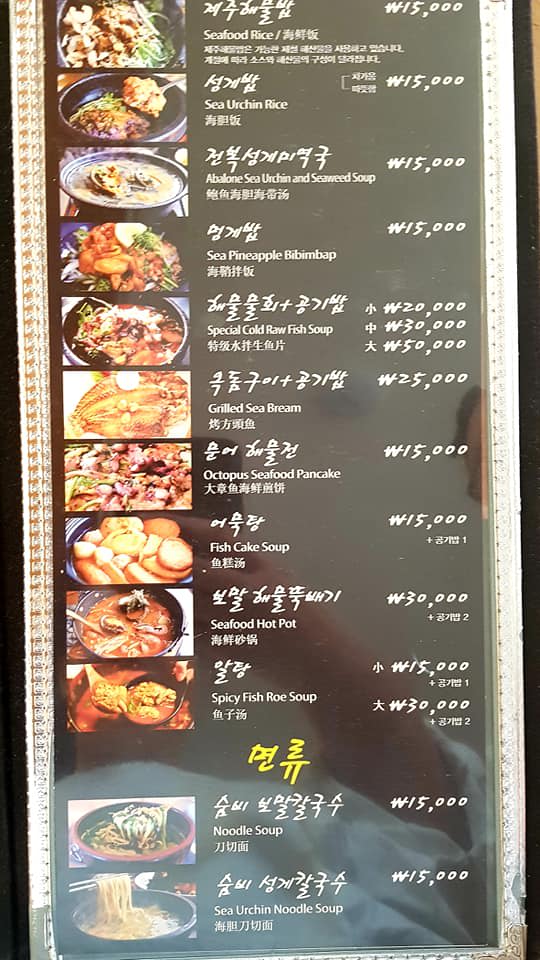 제주해물밥 ₩15,000
Seafood Rice / 海鲜饭
제주해물밥은 가능한 제철 해산물을 사용하고 있습니다.
계절에 따라 소스와 해산물의 구성이 달라집니다.
성게밥 차가움 ₩15,000
따뜻함
Sea Urchin Rice
海胆饭
전복성게미역국 ₩15,000
Abalone Sea Urchin and Seaweed Soup
鲍鱼海胆海带汤
멍게밥 ₩15,000
Sea Pineapple Bibimbap
海鞘拌饭
해물물회+공기밥 小 ₩20,000
Special Cold Raw Fish Soup 中 ₩30,000
特级水拌生鱼片 大 ₩50,000
옥돔구이+공기밥 ₩25,000
Grilled Sea Bream
烤方頭鱼
문어 해물전 ₩15,000
Octopus Seafood Pancake
大章鱼海鲜煎饼
어묵탕 ₩15,000
+ 공기밥 1
Fish Cake Soup
鱼糕汤
보말 해물뚝배기 ₩30,000
+ 공기밥 2
Seafood Hot Pot
海鲜砂锅
알탕 小 ₩15,000
+ 공기밥 1
Spicy Fish Roe Soup 大 ₩30,000
鱼子汤 + 공기밥 2
면류
숨비 보말칼국수 ₩15,000
Noodle Soup
刀切面
숨비 성게칼국수 ₩15,000
Sea Urchin Noodle Soup
海胆刀切面